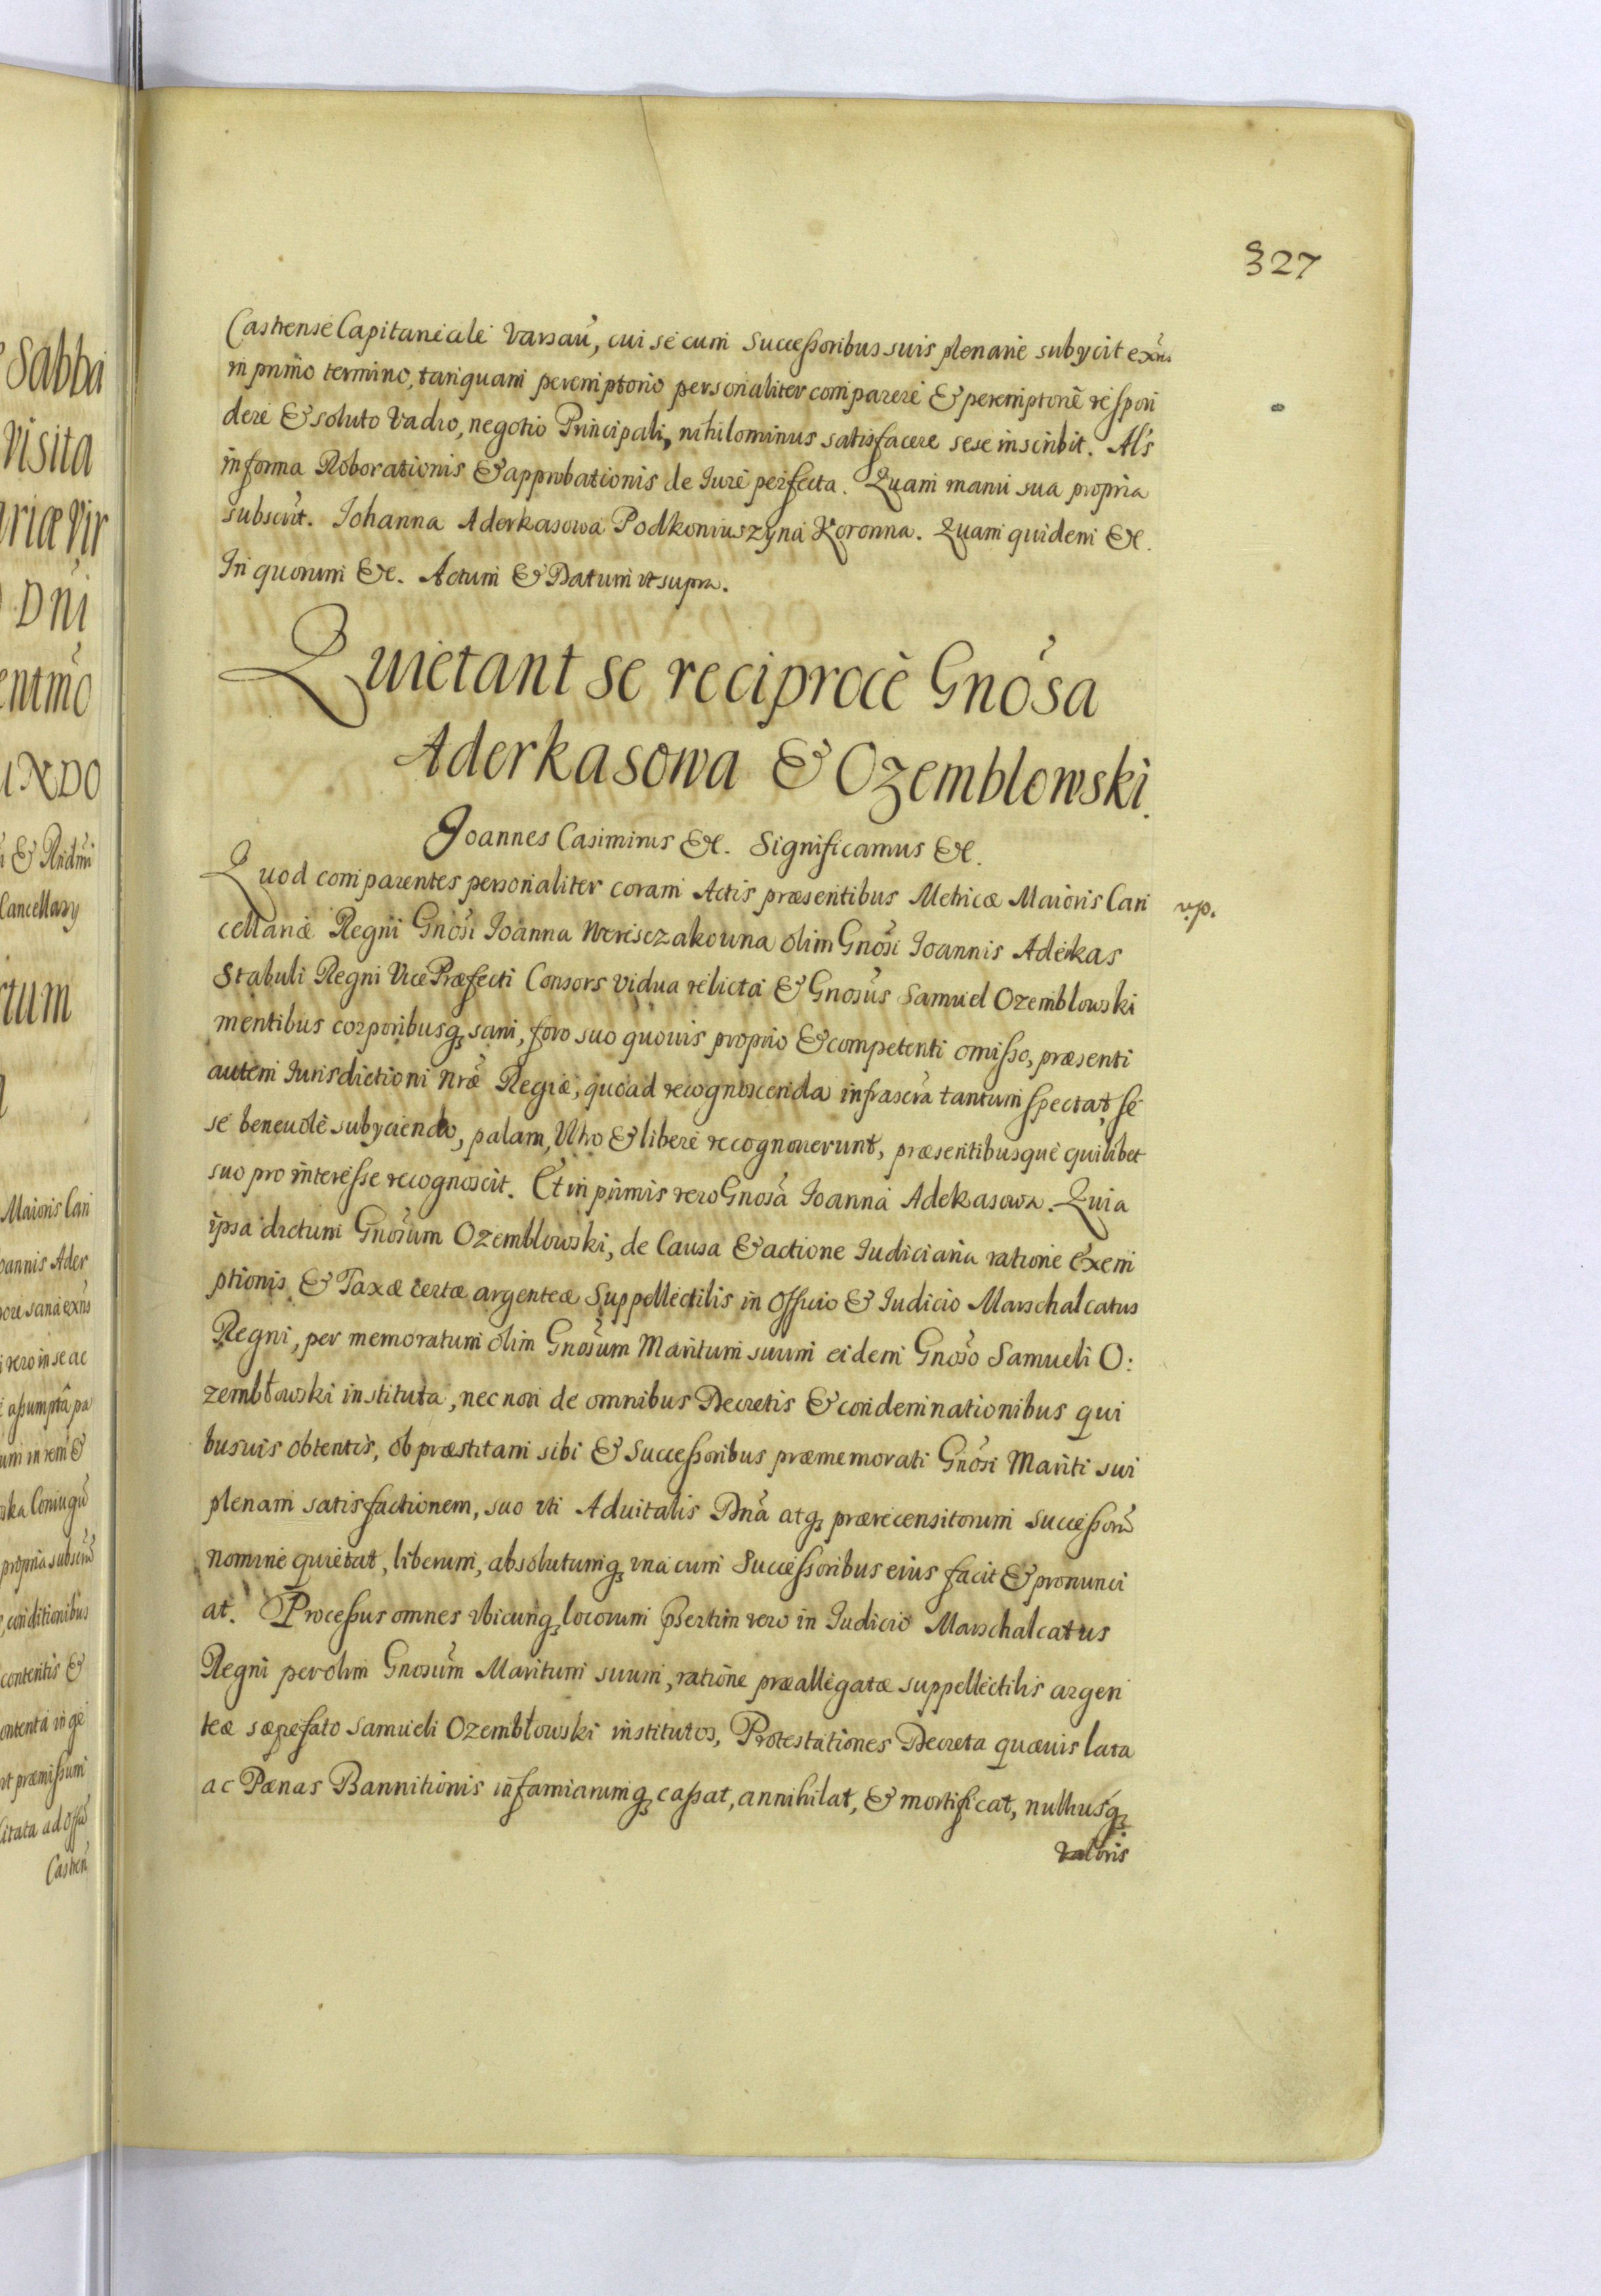 327
Castrense Capitaneale Varsau̇, cui se cum Successoribus suis plenarie subycit exñs
in primo termino, tanquam peremptorio personaliter comparere & peremptorie respon
dere & soluto Vadio, negotio Principali, nihilominus satisfacere sese inscribit. Als
in forma Roborationis & approbationis de Jure perfecta. Quam manu sua propria
subscrit. Johanna Aderkasowa Podkoniuszyna Koronna. Quam quidem &c.
In quorum &c. Actum & Datum ut supra.
Quietant se reciprocè Gnosa
Aderkasowa & Ozemblowski.
Joannes Casimirus &c. Significamus &c.
Quod comparentes personaliter coram Actis præsentibus Metricæ Maioris Can
v.p.
cellariæ Regni Gnosi Joanna Wereszczakowna olim Gnosi Joannis Aderkas
Stabuli Regni Vice Præfecti Consors vidua relicta & Gnosus Samuel Ozemblowski
mentibus corporibusq sani, foro suo quouis proprio & competenti omisso, præsenti
autem Jurisdictioni Nræ Regiæ, quoad recognoscenda infrascra tantum spectat se
se beneuolè subyciendo, palam, Vltro & libere recognouerunt, præsentibusque quilibet
suo pro interesse recognoscit. Et in primis vero Gnosa Joanna Adekasowa. Quia
ipsa dictum Gnosum Ozemblowski, de Causa & actione Judiciaria ratione Exem
ptionis & Taxæ certæ argenteæ Suppellectilis in Officio & Judicio Marschalcatus
Regni, per memoratum olim Gnosum Maritum suum eidem Gnoso Samueli O:
zembłowski instituta, nec non de omnibus Decretis & condemnationibus qui
busuis obtentis, ob præstitam sibi & Successoribus præmemorati Gnosi Mariti sui
plenam satisfactionem, suo vti Aduitalis Dna atq prærecensitorum Successorũ
nomine quietat, liberum, absolutumq vna cum Successoribus eius facit & pronunci
at. Processus omnes vbicunq locorum psertim vero in Judicio Marschalcatus
Regni per olim Gnosum Maritum suum, ratione præallegatæ suppellectilis argen
teæ sæpefato Samueli Ozembłowski institutos, Protestationes Decreta quæuis lata
ac Pænas Bannitionis infamiarumq cassat, annihilat, & mortificat, nulliusq
valoris